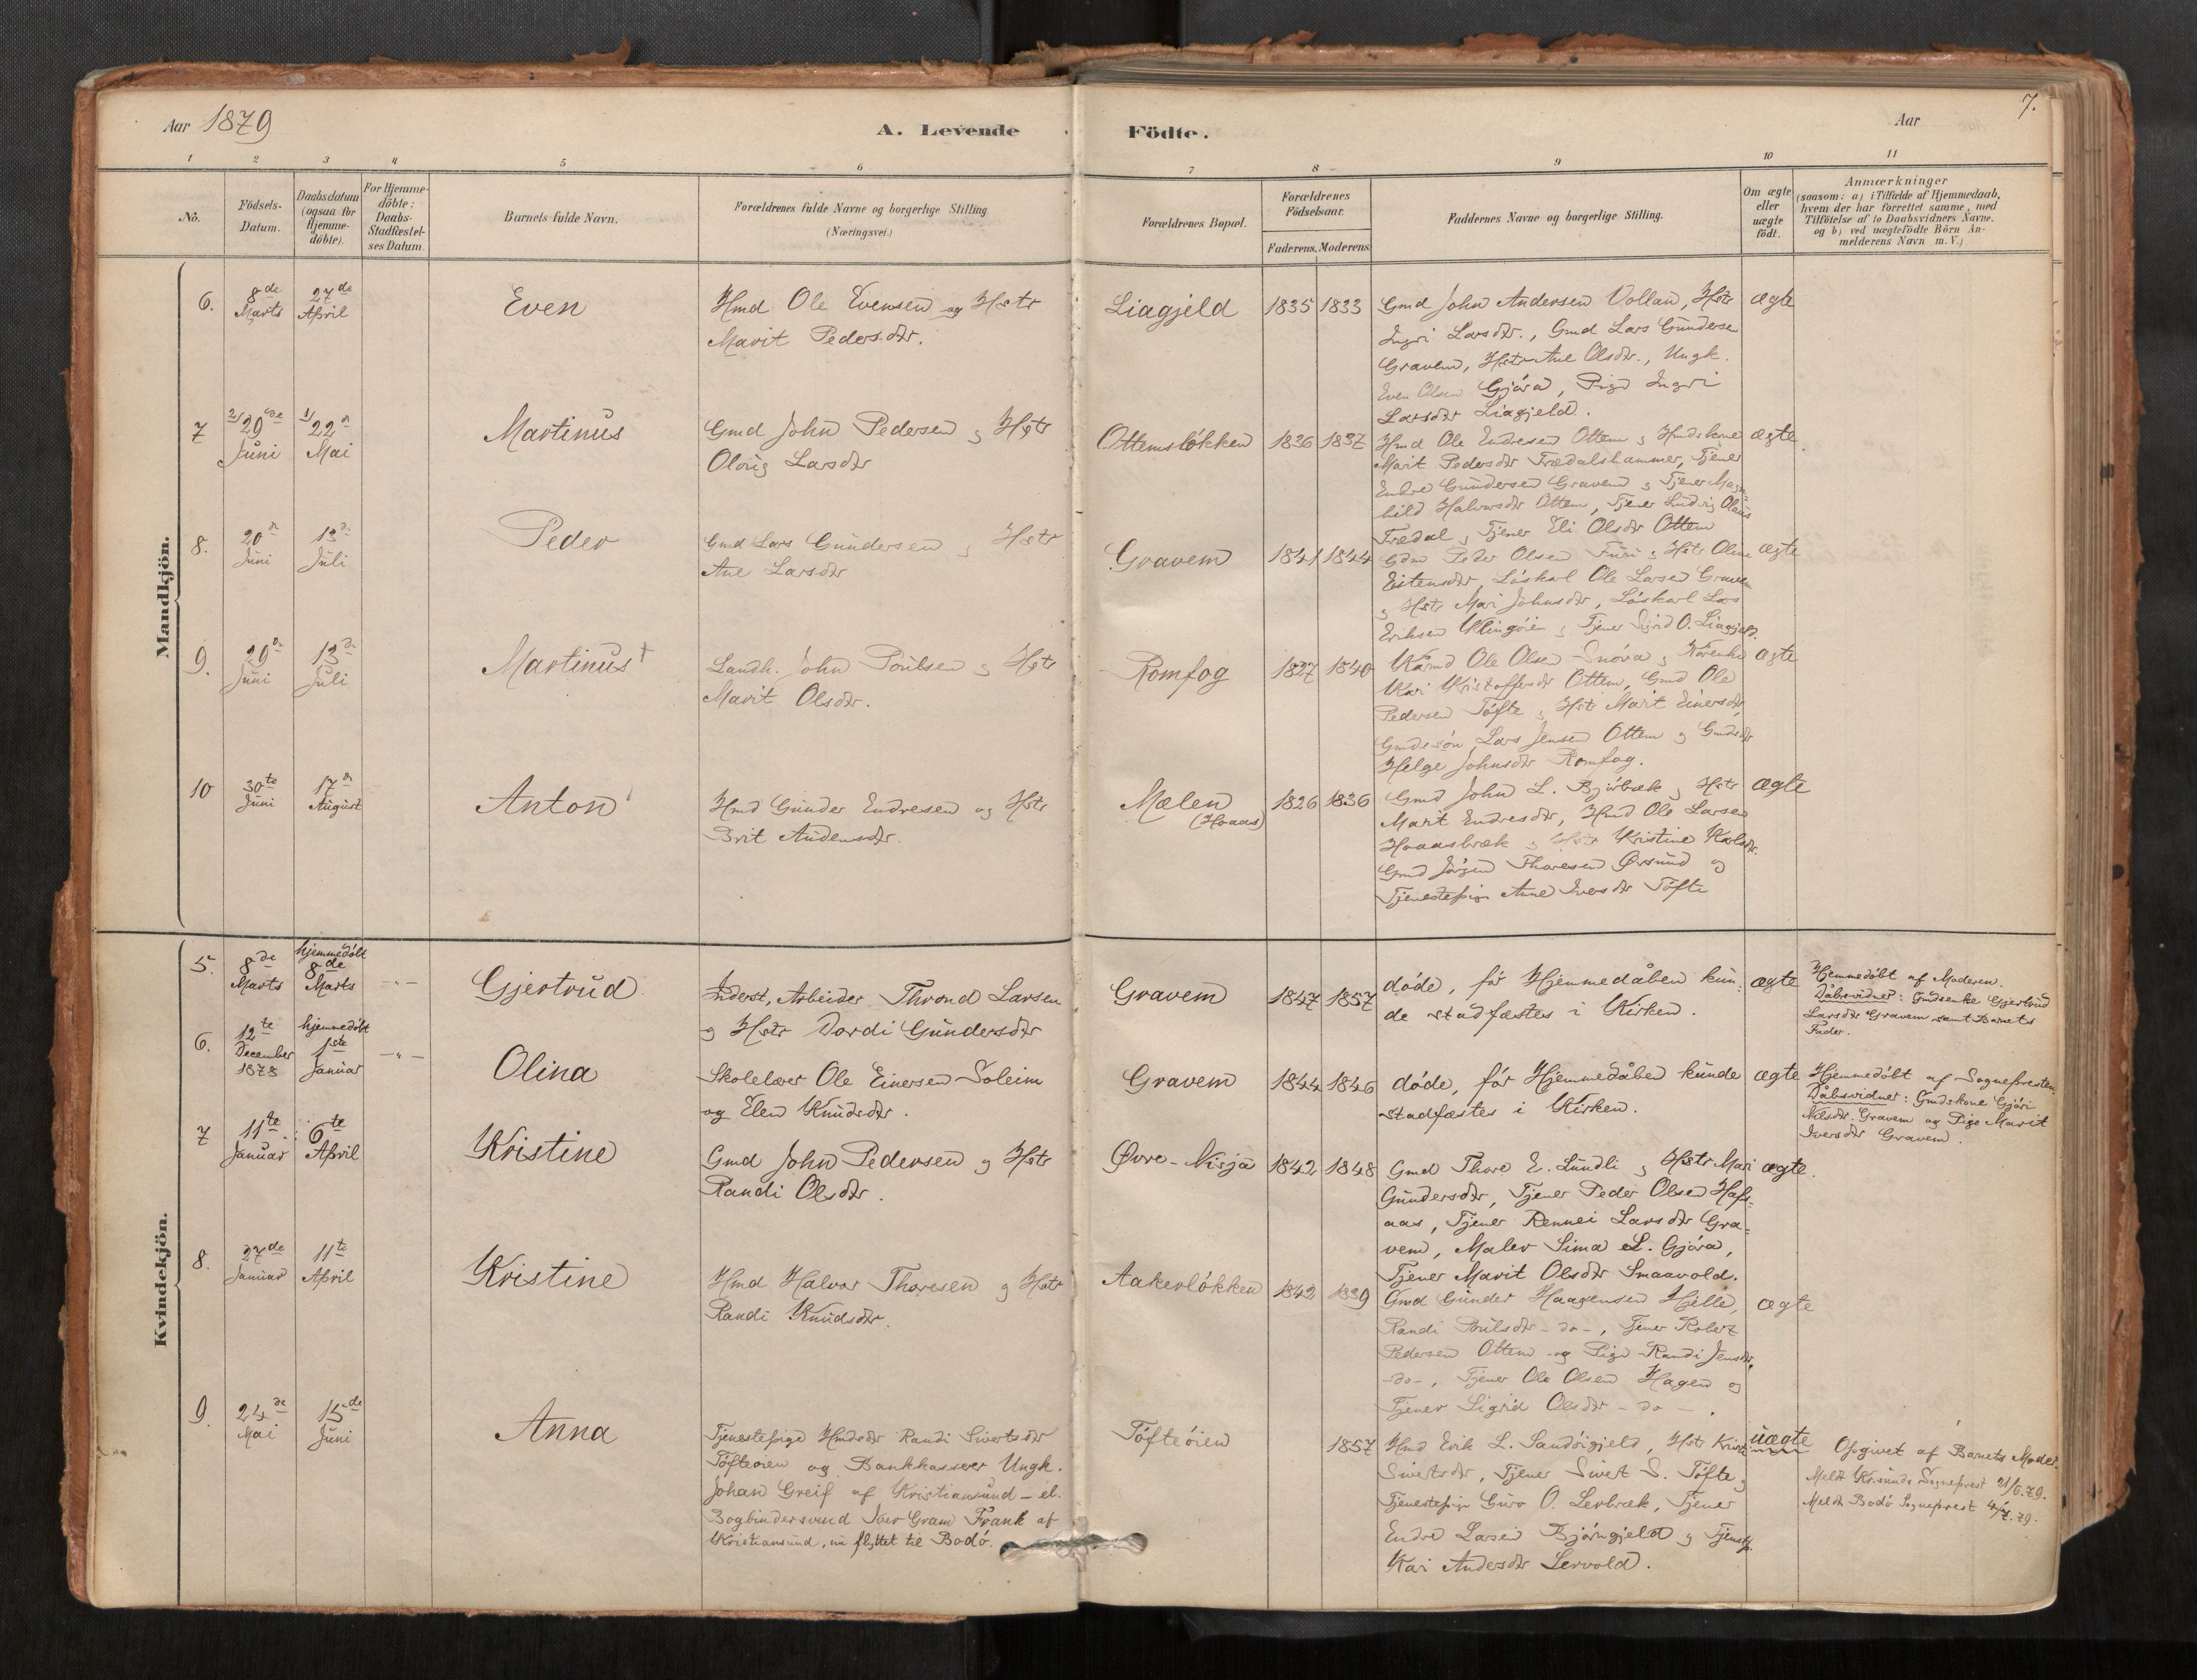 Aar 1879
A. Levende Födte.
Aar
7.
1 2 3 4 5 6 7 8 9 10 11
No.
Födsels-Datum.
Daabsdatum (ogsaa for Hjemme-döbte).
For Hjemme-döbte: Daabs-Stadfæstel-ses Datum.
Barnets fulde Navn.
Forældrenes fulde Navne og borgerlige Stilling (Næringsvei.)
Forældrenes Bopæl.
Forældrenes Födselsaar.
Faderens. Moderens.
Faddernes Navne og borgerlige Stilling.
Om ægte eller uægte födt.
Anmærkninger
(saasom: a) i Tilfælde af Hjemmedaab,
hvem der har forrettet samme, med
Tilföielse af to Daabsvidners Navne.
og b) ved uægtefödte Börn An-
melderens Navn m. V.)
Mandkjön.
6. 8de Marts 27de April
Even
Hmd Ole Evensen og Hstr
Marit Pedersdtr.
Liagjeld 1835 1833
Gmd John Andersen Vollan, Hstr
Ingri Larsdtr., Gmd Lars Gunderse
Gravem, Hstr Ane Olsdtr., Ungk.
Even Olsen Gjöra, Pige Ingri
Larsdtr Liagjeld.
ægte
7 29de Juni 22de Mai
Martinus
Gmd John Pedersen og Hstr
Olorig Larsdtr
Ottemslökken 1836 1837
Hmd Ole Endresen Ottem og Hmdskone
Marit Pedersdtr Frædalshammer, Tjener
Endre Gundersen Gravem og Tjener Magn-
hild Halvorsdtr Ottem, Tjener Ludvig Olaus
Frædal og Tjener Eli Olsdtr Ottem
ægte
8. 20de Juni 13de Juli
Peder
Gmd Lars Gundersen og Hstr
Ane Larsdtr
Gravem 1841 1844
Gdm Peder Olsen Furu og Hstr Oline
Eistensdtr, Löskarl Ole Larsen Gravem
og Hstr Mari Johnsdtr, Löskarl Lars
Eriksen Klingöien og Tjener Sigrid O. Liagjeld.
ægte
9. 29de Juni 13de Juli
Martinus +
Landh. John Poulsen og Hstr
Marit Olsdtr.
Romfog 1827 1840
Kaarmd Ole Olsen Snöva og Kaarenke
Kari Kristoffersdtr Ottem, Gmd Ole
Pedersen Töfte og Hstr Marit Einersdtr,
Gmdsön Lars Jensen Ottem og Gmdsdtr
Helge Johnsdtr Romfog.
ægte
10 30te Juni 17de August
Anton
Hmd Gunder Endresen og Hstr
Brit Audensdtr.
Mælen
(Hoaas)
1826 1836
Gmd John L. Bjørbæk og Hstr
Marit Endresdtr, Hmd Ole Larsen
Hoaasbræk og Hstr Kristine Karlsdtr.
Gmd Jörgen Thoresen Ørsund og
Tjenestepige Ane Iversdtr Töfte
ægte
Kvindekjön.
5. 8de Marts hjemmedöbt 8de Marts -"-
Gjertrud
Inderst, Arbeider Thrond Larsen
og Hstr Dordi Gundersdtr
Gravem 1847 1857
döde, för Hjemmedåben kun-
de stadfæstes i Kirken.
ægte
Hjemmedöbt af Moderen.
Dåbsvidner: Gmdsenke Gjertrud
Larsdtr Gravem samt Barnets
Fader.
6. 12te December 1878 hjemmedöbt 1ste Januar -"-
Olina
Skolelærer Ole Einersen Soleim
og Elen Knudsdtr.
Gravem 1844 1846
döde, för Hjemmedåben kunde
stadfæstes i Kirken.
ægte
Hjemmedöbt af Sognepresten
Dåbsvidner: Gmdskone Gjöri
Nilsdtr. Gravem og Pige Marit
Iversdtr Gravem.
7 11te Januar 6te April
Kristine
Gmd John Pedersen og Hstr
Randi Olsdtr.
Øvre-Nisja 1842 1848
Gmd Thore E. Lundli og Hstr Mari
Gundersdtr, Tjener Peder Olsen Hafs-
aas, Tjener Rennei Larsdtr Gra-
vem, Maler Sima L. Gjöra,
Tjener Marit Olsdtr Smaavold.
ægte.
8. 27de Januar 11te April
Kristine
Hmd Halvor Thoresen og Hstr
Randi Knudsdtr.
Aakerlökken 1842 1839
Gmd Gunder Haagensen Hjelle,
Randi Poulsdtr -do-, Tjener Robert
Pedersen Ottem og Pige Randi Jensdtr.
-do-, Tjener Ole Olsen Hagen og
Tjener Sigrid Olsdtr -do-.
ægte
9. 24de Mai 15de Juni
Anna
Tjenestepige Hmdsdtr Randi Sivertsdtr
Töfteoien og Bankkasserer Ungk.
Johan Greif af Kristiansund - el.
Bogbindersvend Iver Gram Frank af
Kristiansund, nu flyttet til Bodö.
Töfteöien 1857
Hmd Erik L. Sandöigjeld, Hstr Kristi
Sivertsdtr, Tjener Sivert S. Töfte og
Tjenestepige Guro O. Lerbræk, Tjener
Endre Larsen Bjöngjeld og Tjenstp.
Kari Andersdtr Lervold.
uægte
Opgivet af Barnets Moder.
Meldt Krsunds Sogneprest 21/6.79.
Meldt Bodö Sogneprest 4/7.79.